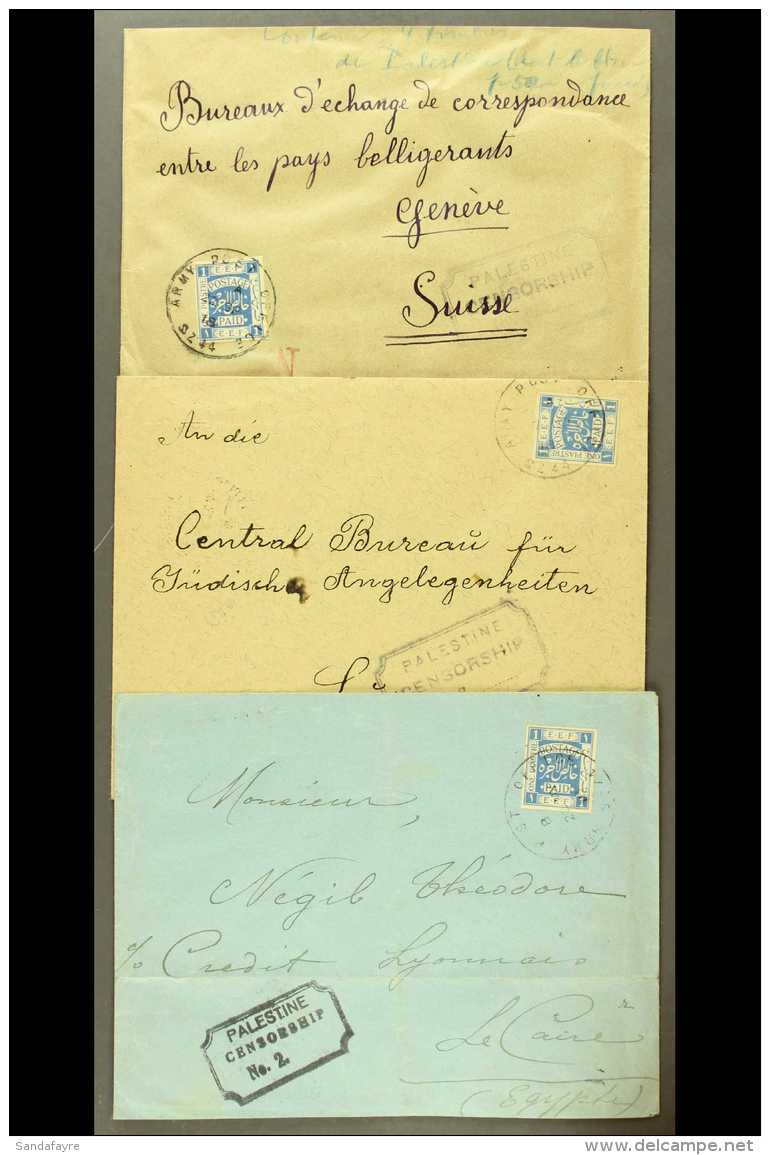 de Palestine
Bureaux d'echange de correspondance
entre les pays belligerants
Genève
Suisse
PALESTINE
CENSORSHIP
ARMY POST OFFICE
SZ44
E.E.F.
POSTAGE
خالص الاجرة
PAID
An die
ARMY POST OFF
SZ44
E.E.F.
POSTAGE
خالص الاجرة
PAID
ONE PIASTRE
Central Bureaŭ für
Jüdische Angelegenheiten
PALESTINE
CENSORSHIP
1 E.E.F. ١
POSTAGE
خالص الاجرة
PAID
1 E.E.F. ١
Monsieur,
Négib Théodore
c/o Credit Lyonnais
Le Caire
(Egypte)
PALESTINE
CENSORSHIP
No. 2.
Sandafayre
delcampe.net